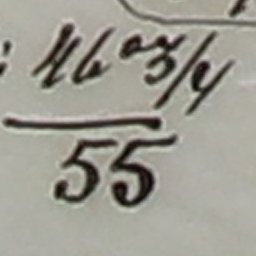 46 03/4
55